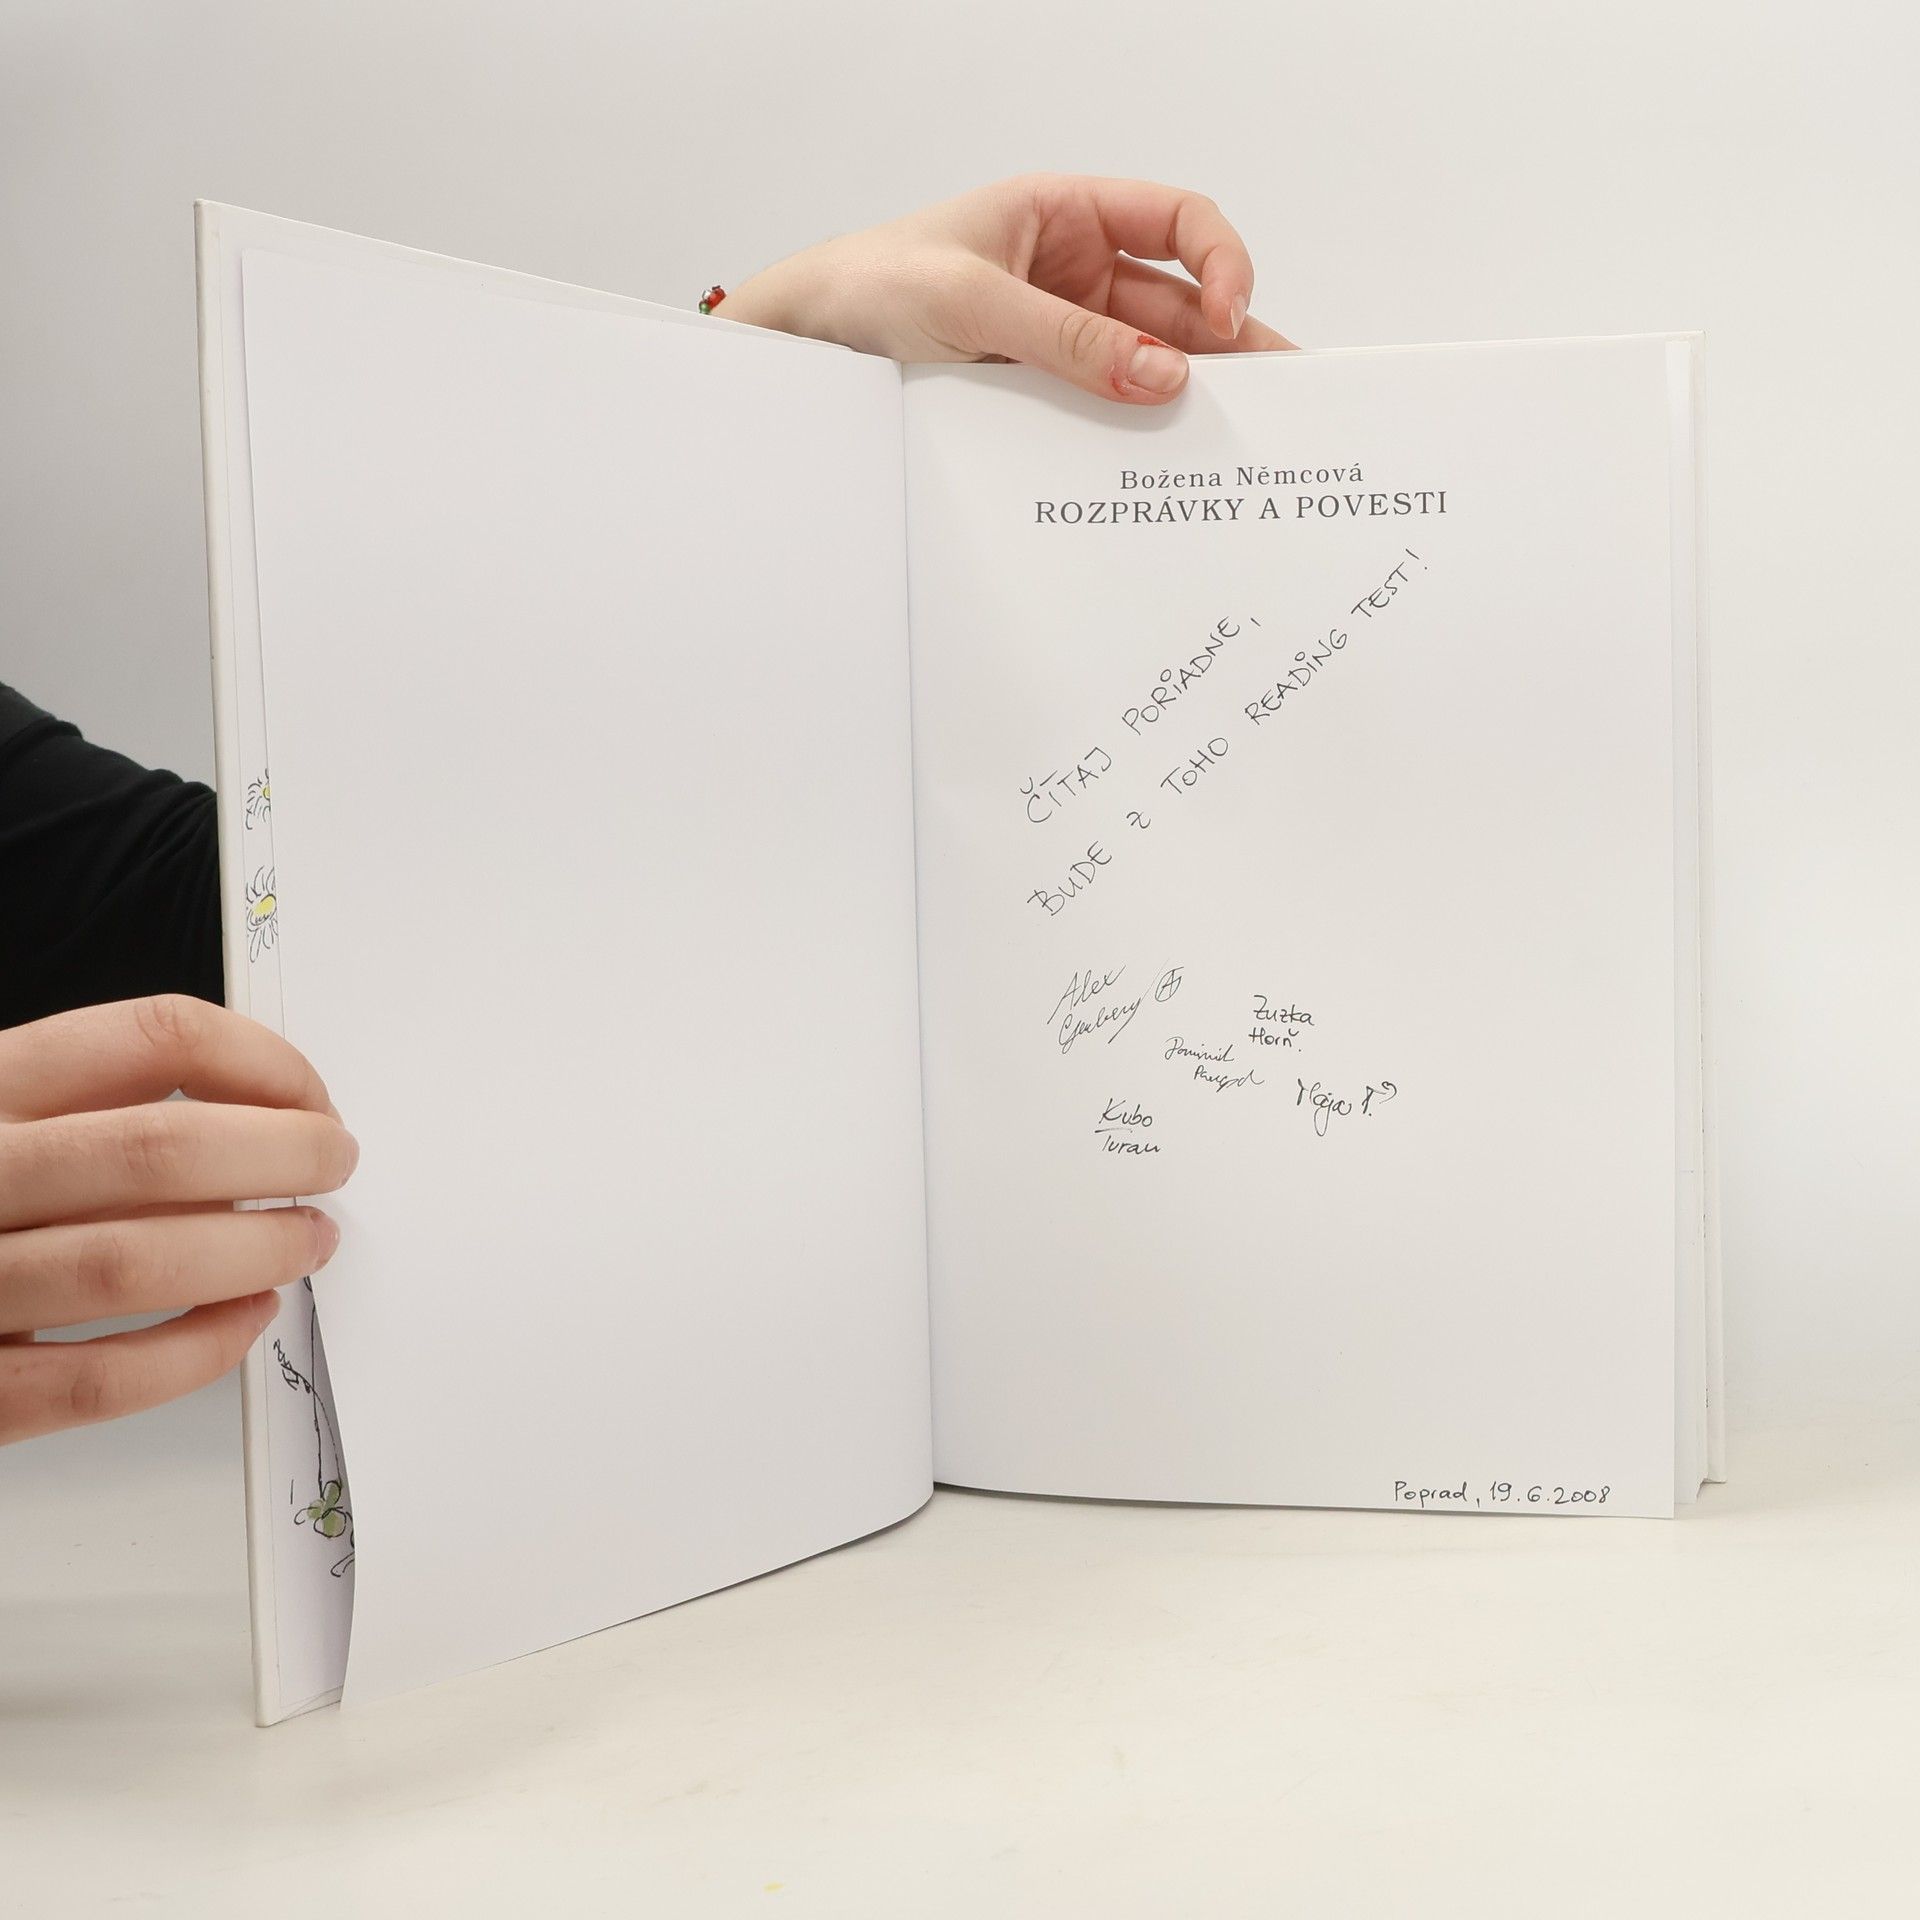 Božena Němcová
ROZPRÁVKY A POVESTI
ČÍTAJ PORIADNE,
BUDE Z TOHO READING TEST!
Alex
Zuzka
Horň.
Dominik
Kubo
Turan
Maja
Poprad, 19.6.2008